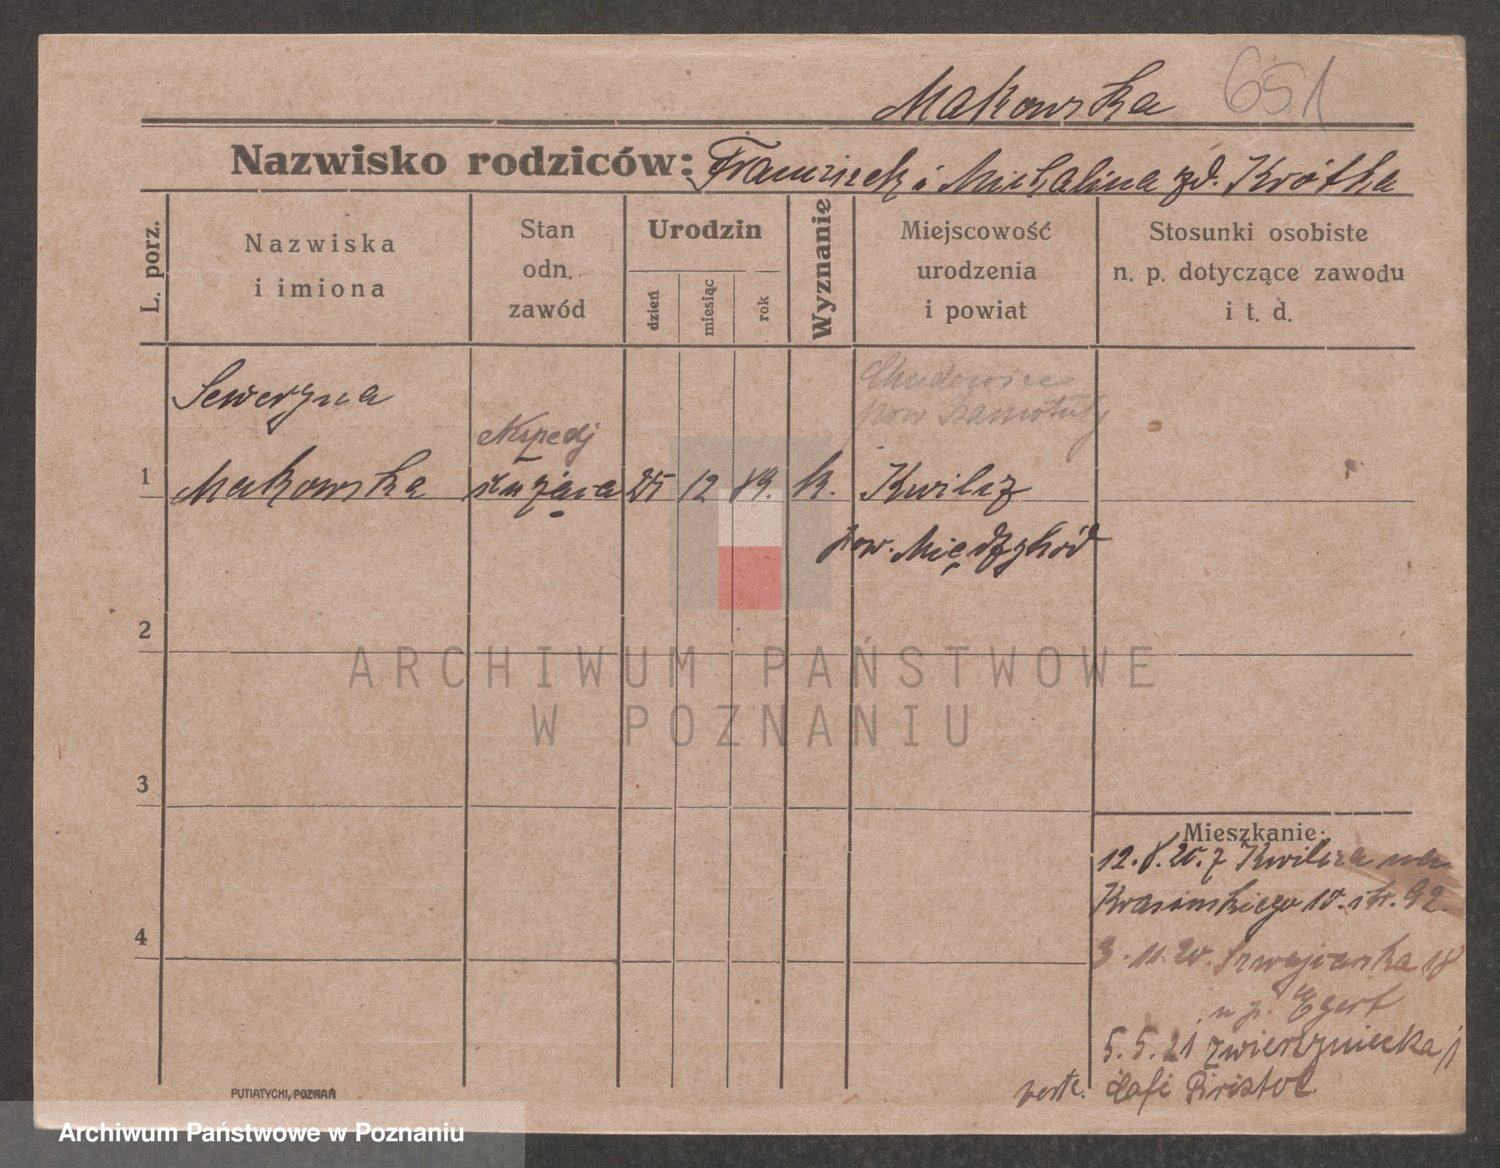 Makowska 651
Nazwisko rodziców: Franciszek i Michalina zd. Krótka
L. porz.
Nazwiska
i imiona
Stan
odn.
zawód
Urodzin
dzień
miesiąc
rok
Wyznanie
Miejscowość
urodzenia
i powiat
Stosunki osobiste
n. p. dotyczące zawodu
i t. d.
Seweryna
pow Szamotuły
1 Makowska służąca 25 12 89. k. Kwilcz
pow. Międzychód
2
3
4
Mieszkanie:
12.8.20. z Kwilcza na
Krasińskiego 10. 92.
3.11.20. Szwajcarska 18
u p. Egert
5.5.21 Zwierzyniecka 1
verte. Cafe Bristol
PUTIATYCKI, POZNAŃ
ARCHIWUM PAŃSTWOWE
W POZNANIU
Archiwum Państwowe w Poznaniu